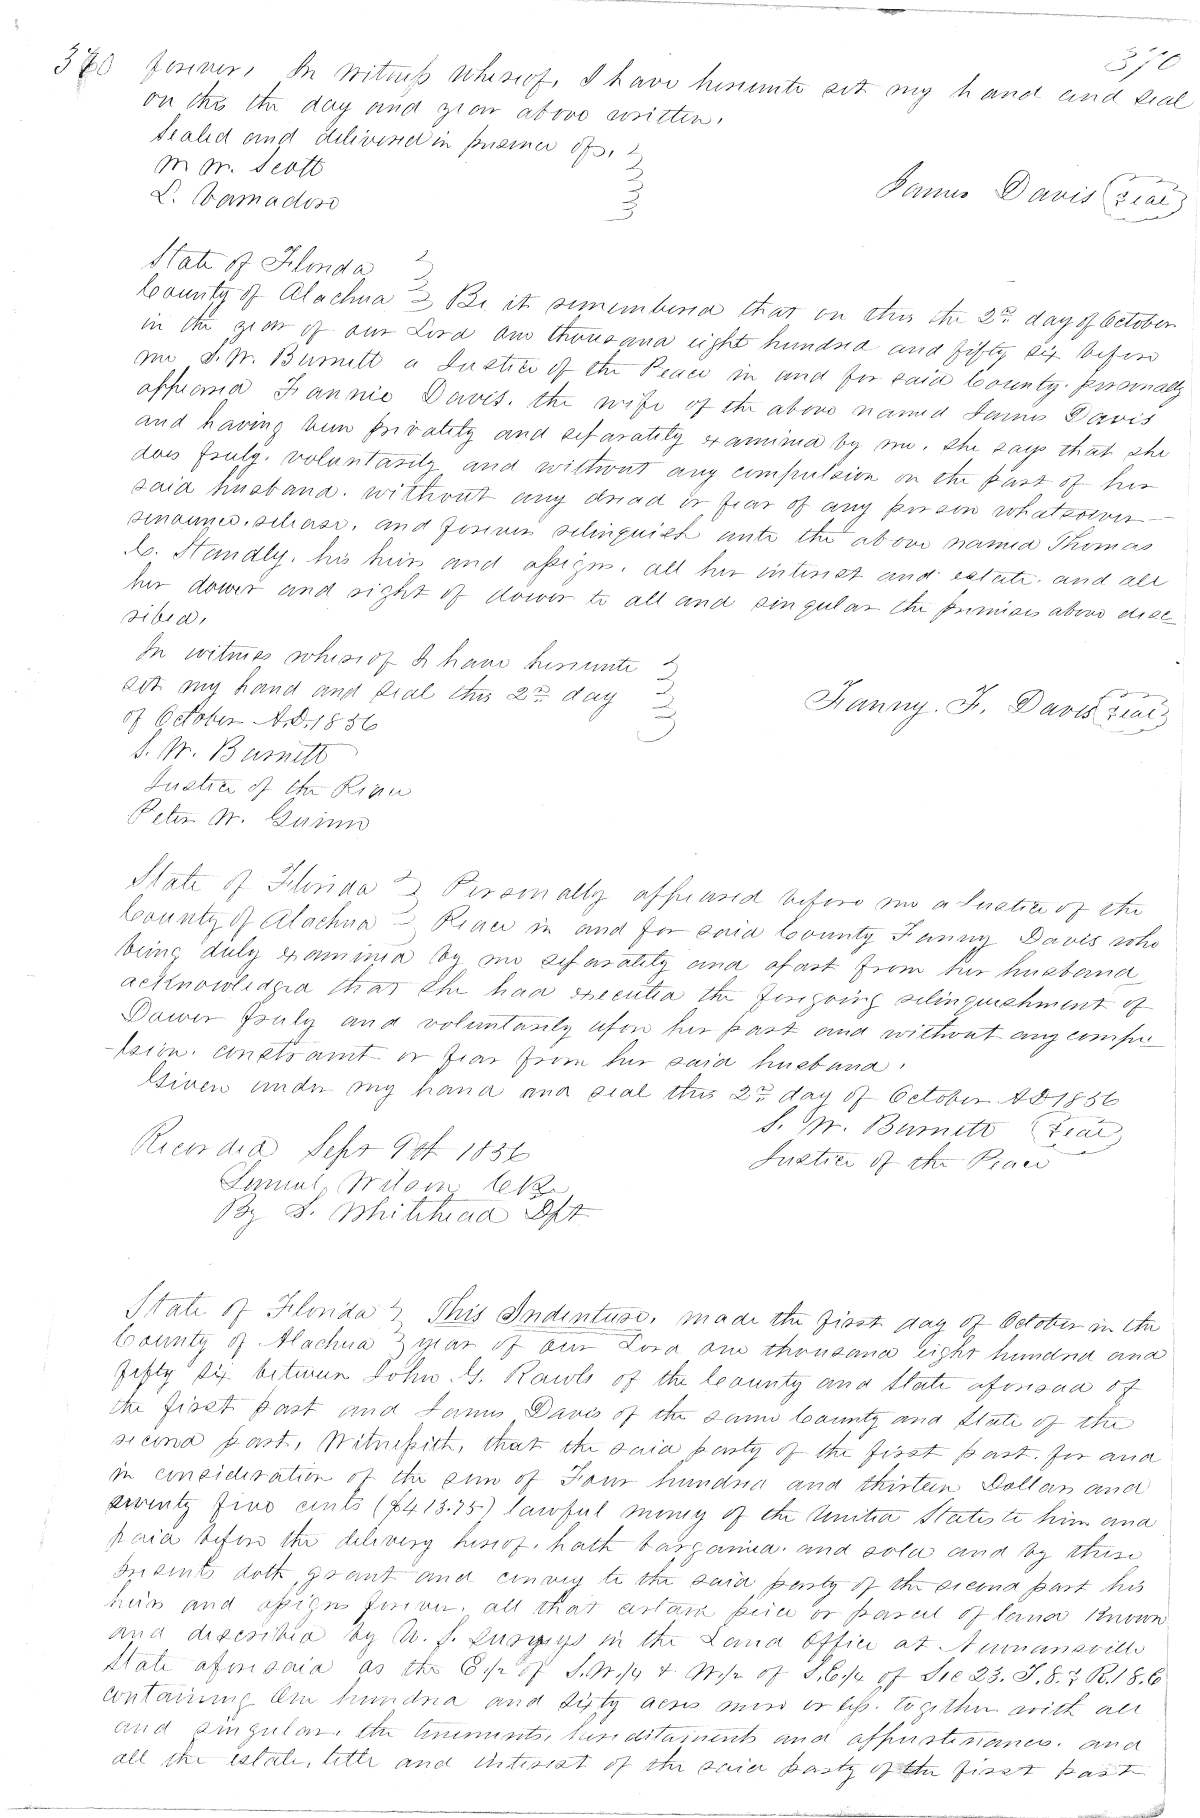 370 forever, In Witness whereof, I have hereunto set my hand and seal
370
on this the day and year above written.
Sealed and delivered in presence of,
M M. Scott
L. Vamadore
James Davis (Seal)
State of Florida
County of Alachua Be it remembered that on this the 2nd day of October
in the year of our Lord one thousand eight hundred and fifty six before
me S. W. Burnett a Justice of the Peace in and for said County personally
appeared Fannie Davis. the wife of the above named James Davis
and having been privately and separately examined by me. she says that she
does freely. voluntarily and without any compulsion on the part of her
said husband. without any dread or fear of any person whatsoever—
renounce. release. and forever relinquish unto the above named Thomas
C. Standly. his heirs and assigns. all her interest and estate. and all
her dower and right of dower to all and singular the premises above disc-
ribed.
In witness whereof I have hereunto
set my hand and seal this 2nd day
of October A.D. 1856
Fanny. F. Davis (Seal)
S. W. Burnett
Justice of the Peace
Peter W. Guinn
State of Florida Personally appeared before me a Justice of the
County of Alachua Peace in and for said County Fanny Davis who
being duly examined by me separately and apart from her husband
acknowledged that she had executed the foregoing relinquishment of
Dower freely and voluntarily upon her part and without any compu-
-lsion. constraint or fear from her said husband.
Given under my hand and seal this 2nd day of October A D 1856
S. W. Burnett (Seal)
Recorded Sept 9th 1856
Justice of the Peace
Samuel Wilson Clk
By S. Whitehead Dpt
State of Florida This Indenture. made the first day of October in the
County of Alachua year of our Lord one thousand eight hundred and
fifty six between John G. Rawls of the County and State aforesaid of
the first part and James Davis of the same County and State of the
second part, Witnesseth, that the said party of the first part. for and
in consideration of the sum of Four hundred and thirteen Dollars and
seventy five cents ($413.75) lawful money of the United States to him and
paid before the delivery hereof. hath bargained. and sold and by these
presents doth grant and convey to the said party of the second part his
heirs and assigns forever. all that certain peice or parcel of land known
and described by U. S. surveys in the Land Office at Newnansville
State aforesaid as the E 1/2 of S. W. 1/4 & W. 1/2 of S. E. 1/4 of Sec 23. T. 8. R. 18. E
containing One hundred and sixty acres more or less. together with all
and singular. the tenements, hereditaments and appurtenances. and
all the estate, title and interest of the said party of the first part